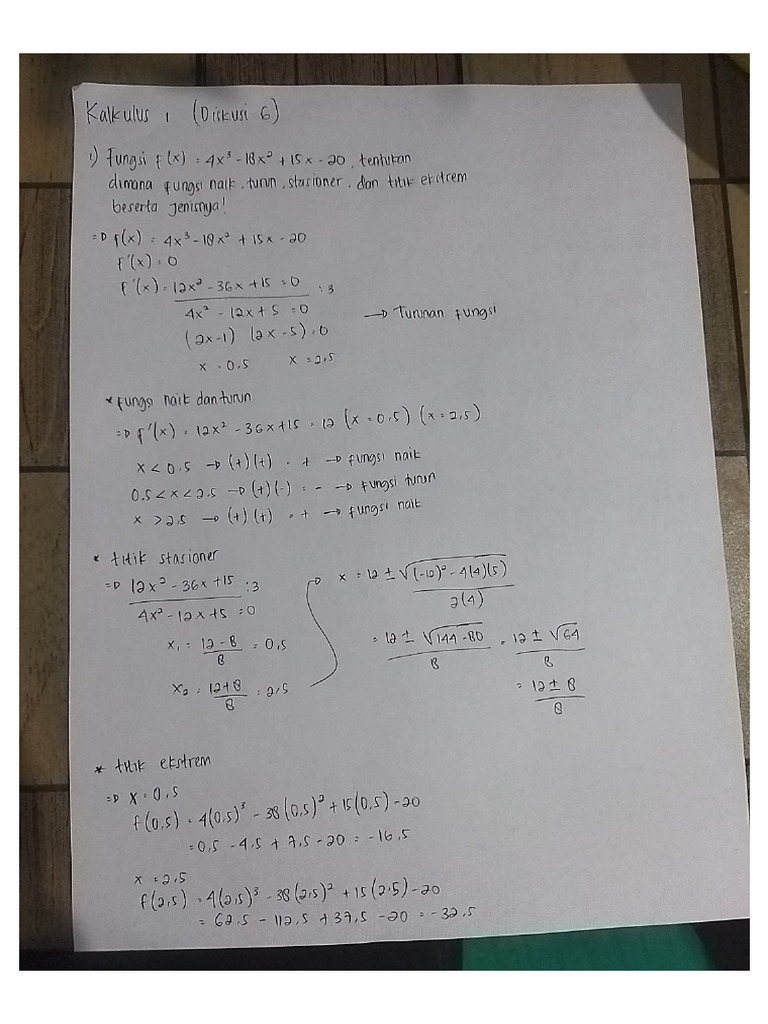 Kalkulus 1 (Diskusi 6)
1) Fungsi f(x) = 4x³ - 18x² + 15x - 20, tentukan
dimana fungsi naik, turun, stasioner, dan titik ekstrem
beserta jenisnya!
=D f(x) = 4x³ - 18x² + 15x - 20
f'(x) = 0
f'(x) = 12x² - 36x + 15 = 0 :3
4x² - 12x + 5 = 0
(2x-1) (2x-5) = 0 → Turunan fungsi
x = 0,5 x = 2,5
* fungsi naik dan turun
=D f'(x) = 12x² - 36x + 15 = 12 (x = 0,5) (x = 2,5)
x < 0,5 → (+)(+) = + → fungsi naik
0,5 < x < 2,5 → (+)(-) = - → fungsi turun
x > 2,5 → (+)(+) = + → fungsi naik
* titik stasioner
=D 12x² - 36x + 15 :3
4x² - 12x + 5 = 0
x₁ = 12 - 8 / 8 = 0,5
x₂ = 12 + 8 / 8 = 2,5
→ x = 12 ± √(-12)² - 4(4)(5) / 2(4)
= 12 ± √144 - 80 / 8 = 12 ± √64 / 8
= 12 ± 8 / 8
* titik ekstrem
=D x = 0,5
f(0,5) = 4(0,5)³ - 38(0,5)² + 15(0,5) - 20
= 0,5 - 4,5 + 7,5 - 20 = -16,5
x = 2,5
f(2,5) = 4(2,5)³ - 38(2,5)² + 15(2,5) - 20
= 62,5 - 112,5 + 37,5 - 20 = -32,5